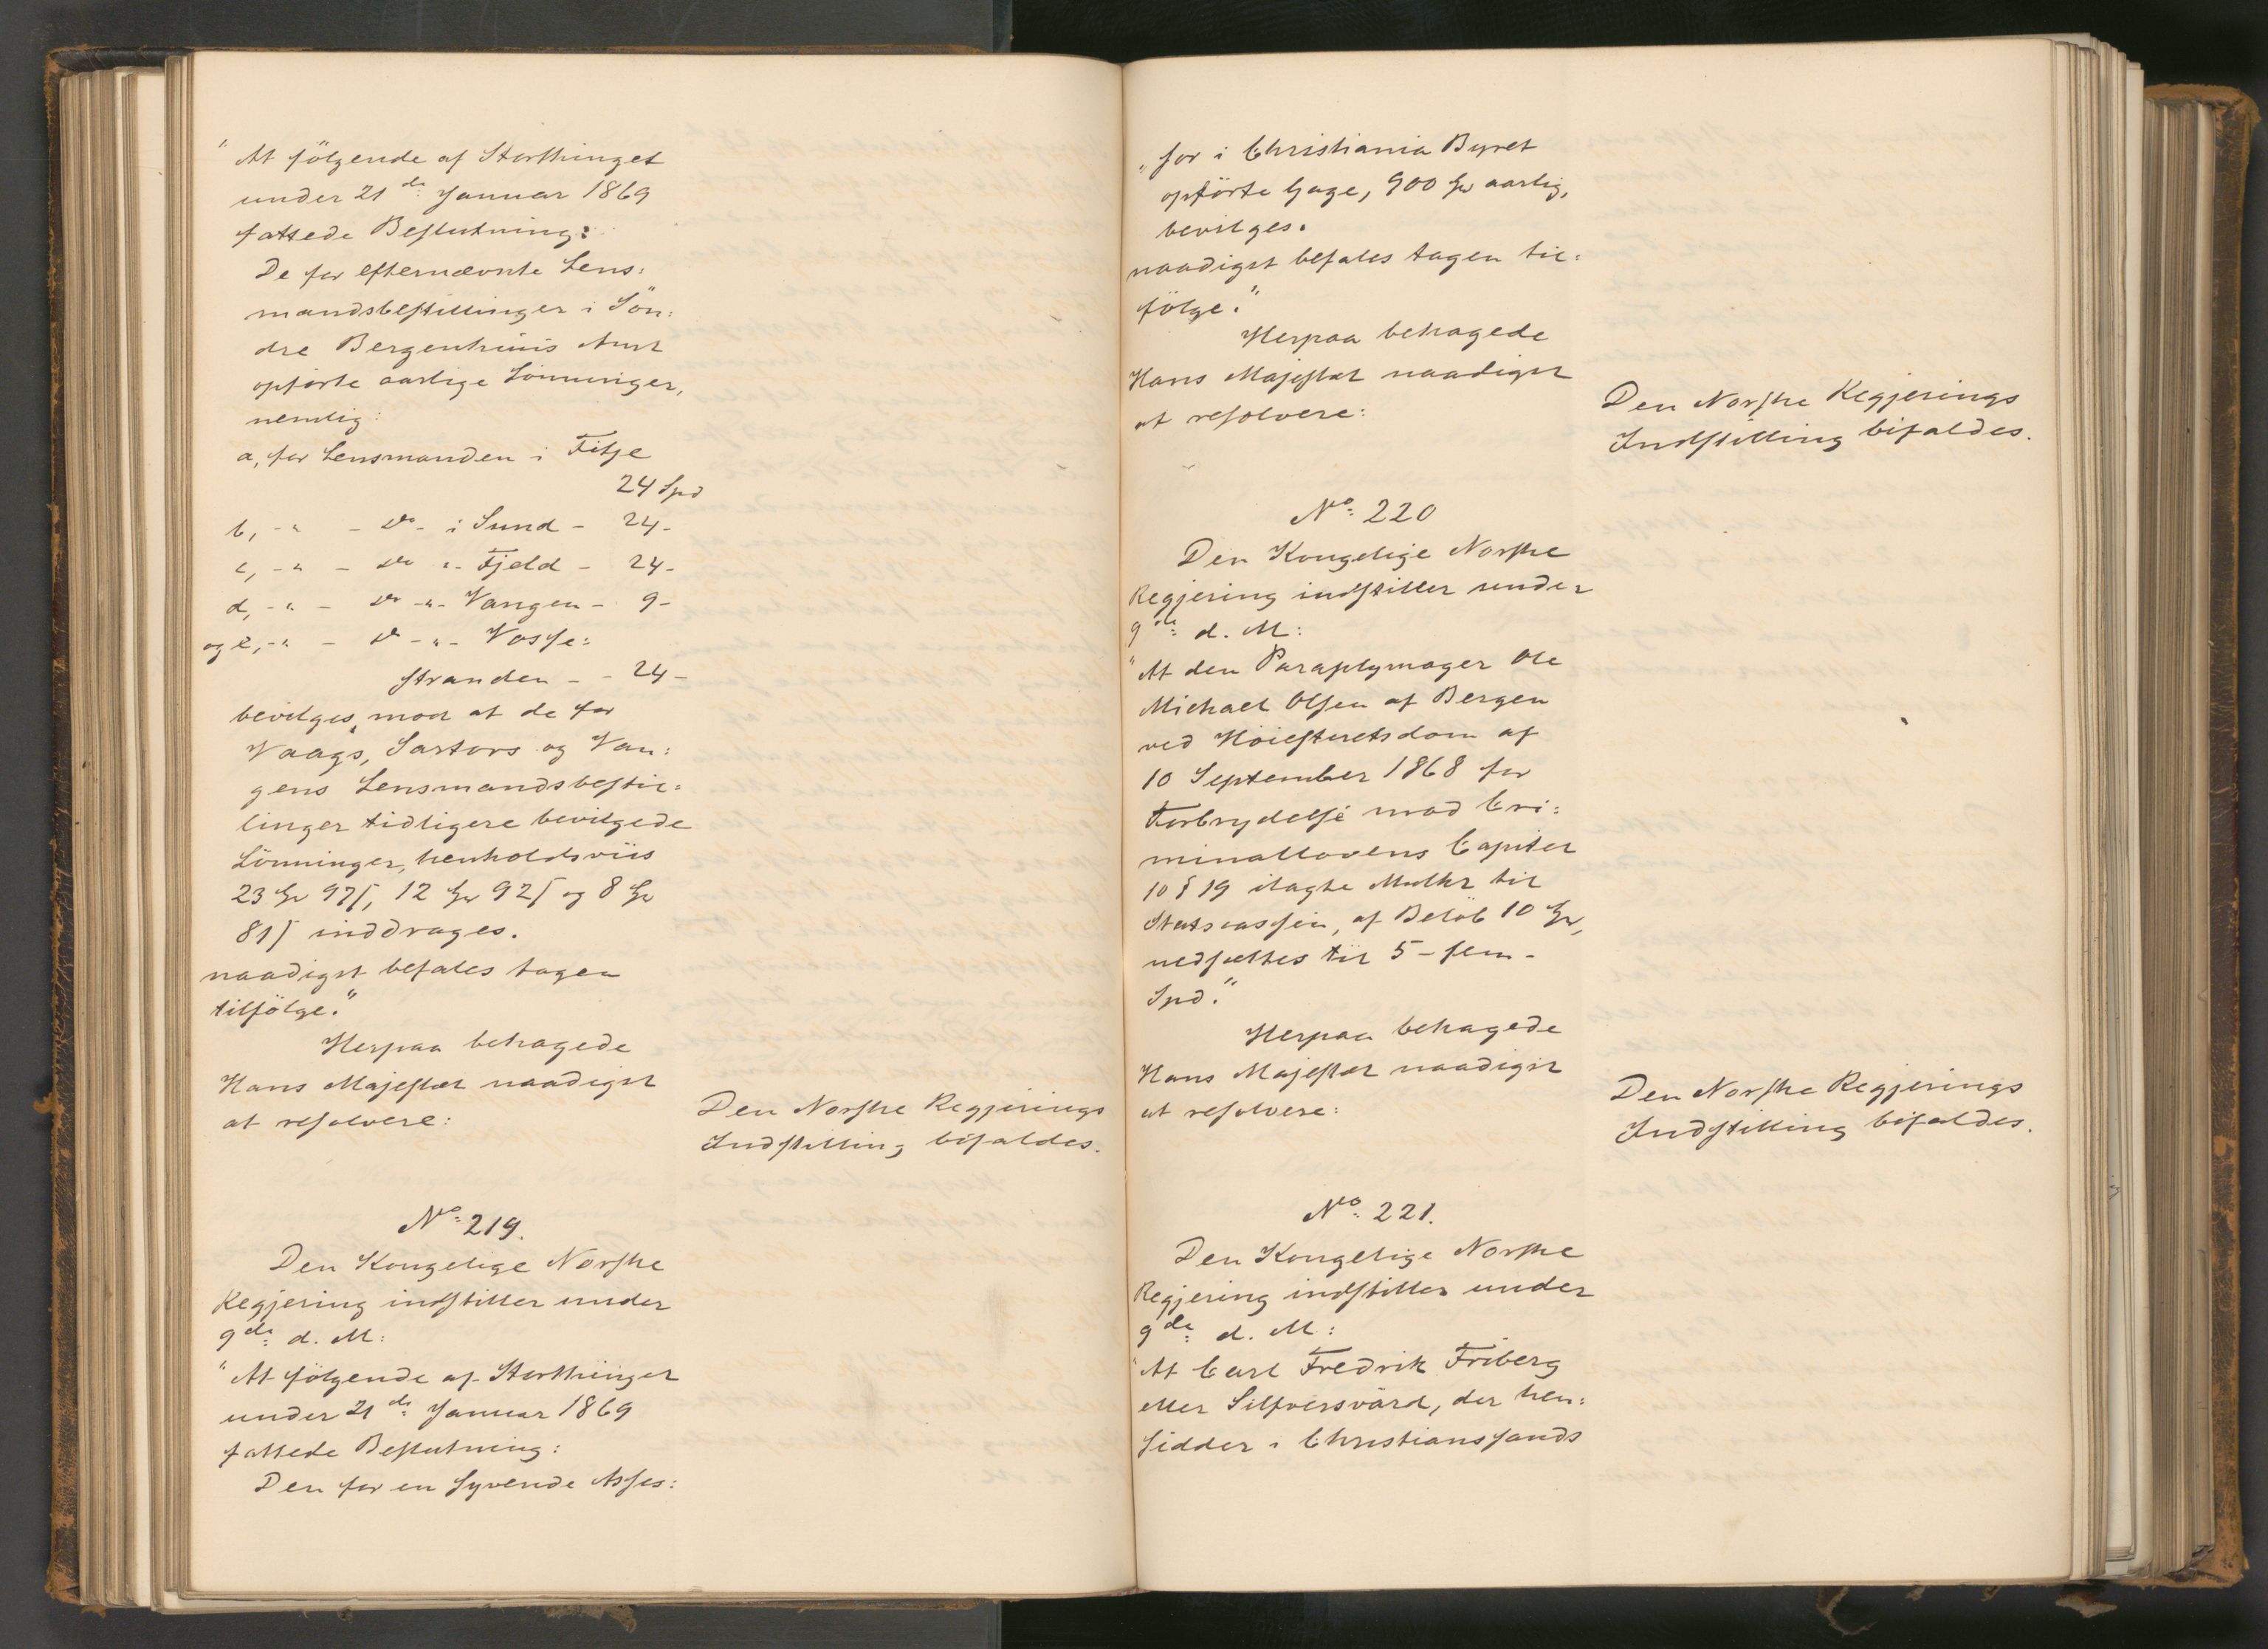 "At fölgende af Storthinget
under 21de Januar 1869
fattede Beslutning:
De for efternævnte Lens:
mandsbestillinger i Sön:
dre Bergenhuus Amt
opførte aarlige Lönninger,
nemlig:
a, for Lensmanden i Fitje
24 Spd
b, -"- - Do - i Sund - 24 -
c, -"- - Do -"- Fjeld - 24 -
d, -"- - Do -"- Vangen - 9 -
og e, -"- - Do -"- Vosse:
stranden - - 24 -
bevilges, mod at de for
Vaags, Sartors og Van:
gens Lensmandsbestil:
linger tidligere bevilgede
Lönninger, henholdsviis
23 Spd 97 ß, 12 Spd 92 ß og 8 Spd
81 ß inddrages.
naadigst befales tagen
tilfölge."
Herpaa behagede
Hans Majestæt naadigst
at resolvere:
Den Norske Regjerings
Indstilling bifaldes.
No 219.
Den Kongelige Norske
Regjering indstiller under
9de d. M:
"At fölgende af Storthinget
under 21de Januar 1869
fattede Beslutning:
Den for en syvende Asses:
"sor i Christiania Byret
opförte Gage, 900 Spd aarlig,
bevilges.
naadigst befales tagen til:
fölge."
Herpaa behagede
Hans Majestæt naadigst
at resolvere:
Den Norske Regjerings
Indstilling bifaldes.
No 220
Den Kongelige Norske
Regjering indstiller under
9de d. M:
"At den Paraplymager Ole
Michael Olsen af Bergen
ved Höiesteretsdom af
10 September 1868 for
Forbrydelse mod Cri:
minallovens Capitel
10 § 19 ilagte Mulkt til
Statscassen, af Belöb 10 Spd,
nedsættes til 5 - fem -
Spd."
Herpaa behagede
Hans Majestæt naadigst
at resolvere:
Den Norske Regjerings
Indstilling bifaldes.
No 221.
Den Kongelige Norske
Regjering indstiller under
9de d. M:
"At Carl Fredrik Friberg
eller Silfversvärd, der hen:
sidder i Christianssands